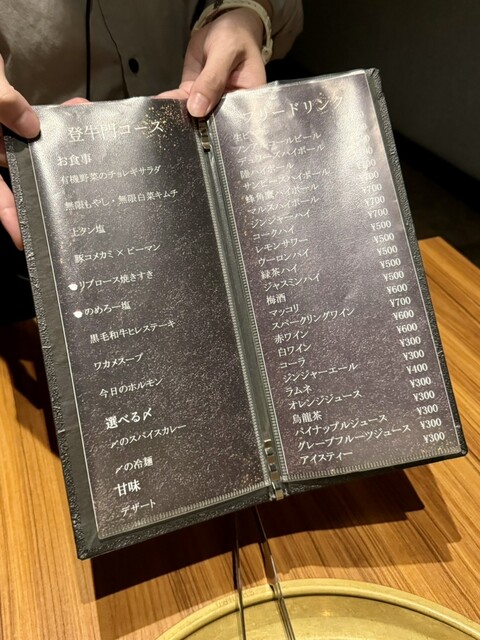 登牛門コース
お食事
有機野菜のチョレギサラダ
無限もやし・無限白菜キムチ
上タン塩
豚コメカミ×ピーマン
リブロース焼きすき
のめろー塩
黒毛和牛ヒレステーキ
ワカメスープ
今日のホルモン
選べる〆
〆のスパイスカレー
〆の冷麺
甘味
デザート
フリードリンク
生ビール
ノンアルコールビール
デュワーズハイボール
陸ハイボール
サンピースハイボール
蜂角鷹ハイボール
マルスハイボール
ジンジャーハイ
コークハイ
レモンサワー
ウーロンハイ
緑茶ハイ
ジャスミンハイ
梅酒
マッコリ
スパークリングワイン
赤ワイン
白ワイン
コーラ
ジンジャーエール
ラムネ
オレンジジュース
烏龍茶
パイナップルジュース
グレープフルーツジュース
アイスティー
¥700
¥700
¥700
¥500
¥500
¥500
¥500
¥500
¥600
¥700
¥600
¥600
¥300
¥300
¥400
¥300
¥300
¥300
¥300
¥300